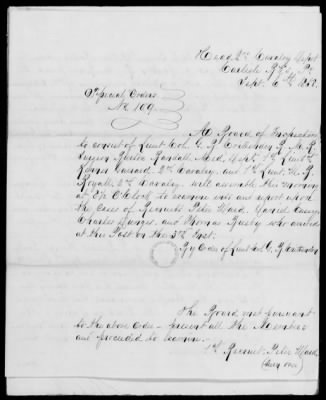 Head Qrs Cavalry Depot
Carlisle Bks Pa
Sept. 6th
Special Orders
No 109.
A Board of Inspection
to consist of Lieut Col. G. B. Crittenden R. M. R.
Surgeon Randall Med. Dept. 1st Lieut
2nd Cavalry, and 1st Lieut W. B.
Royall, 2nd Cavalry, will assemble this morning
at O'Clock to examine into and report upon
the cases of Recruits Peter Ward, Daniel Casey,
Charles and Thomas who arrived
at this Post on the 5th Inst.
By Order of Lieut Col G. B. Crittenden
The Board met pursuant
to the above order - present all the Members
and proceeded to examine
1st Recruit Peter Ward.